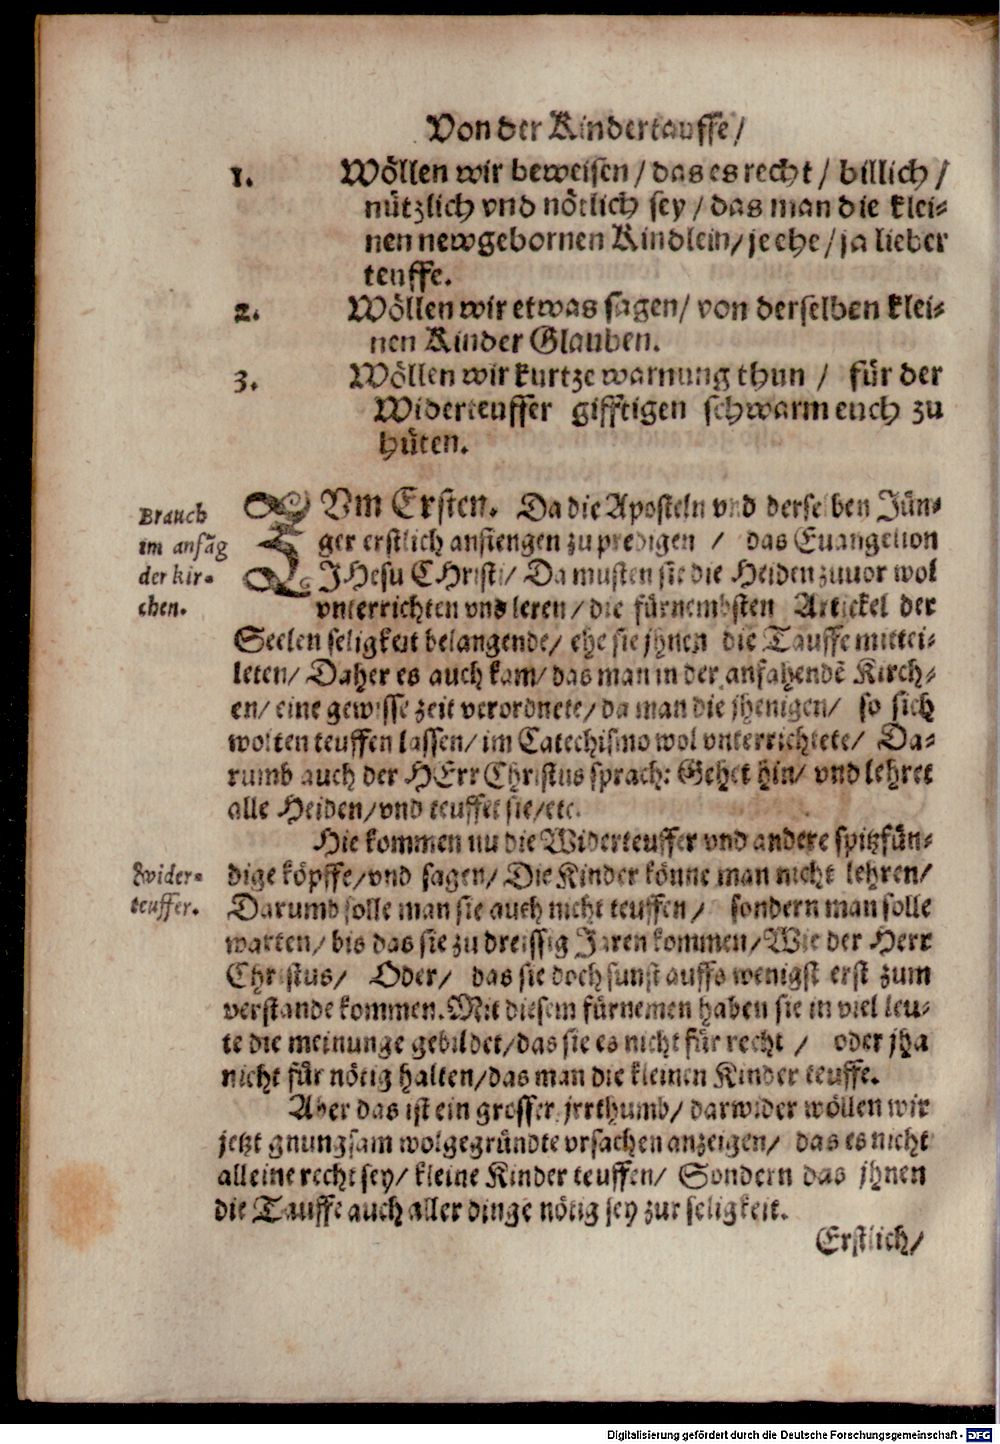 Von der Kindertauffe/
1. Wöllen wir beweisen / das es recht / billich /
nützlich vnd nötlich sey / das man die klei-
nen newgebornen Kindlein/ je ehe / ja lieber
teuffe.
2. Wöllen wir etwas sagen/ von derselben klei-
nen Kinder Glauben.
3. Wöllen wir kurtze warnung thun / für der
Widerteuffer gifftigen schwarm euch zu
hüten.
Brauch
im anfãg
der kir-
chen.
ZVm Ersten. Da die Aposteln vnd derselben Jün-
ger erstlich anfiengen zu predigen / das Euangelion
JHesu CHristi/ Da musten sie die Heiden zuuor wol
vnterrichten vnd leren/ die fürnembsten Artickel der
Seelen seligkeit belangende/ ehe sie jhnen die Tauffe mittei-
leten/ Daher es auch kam/ das man in der anfahendẽ Kirch-
en/ eine gewisse zeit verordnete/ da man die jhenigen/ so sich
wolten teuffen lassen/ im Catechismo wol vnterrichtete/ Da-
rumb auch der HErr Christus sprach: Gehet hin/ vnd lehret
alle Heiden/ vnd teuffet sie/ etc.
Hie kommen nu die Widerteuffer vnd andere spitzfün-
Wider-
teuffer.
dige köpffe/ vnd sagen/ Die Kinder könne man nicht lehren/
Darumb solle man sie auch nicht teuffen / sondern man solle
warten/ bis das sie zu dreissig Jaren kommen/ Wie der Herr
Christus/ Oder/ das sie doch sunst auffs wenigst erst zum
verstande kommen. Mit diesem fürnemen haben sie in viel leu-
te die meinunge gebildet/ das sie es nicht für recht / oder jha
nicht für nötig halten/ das man die kleinen Kinder teuffe.
Aber das ist ein grosser jrrthumb/ darwider wöllen wir
jetzt gnungsam wolgegründte vrsachen anzeigen/ das es nicht
alleine recht sey/ kleine Kinder teuffen/ Sondern das jhnen
die Tauffe auch aller dinge nötig sey zur seligkeit.
Erstlich/
Digitalisierung gefördert durch die Deutsche Forschungsgemeinschaft - DFG